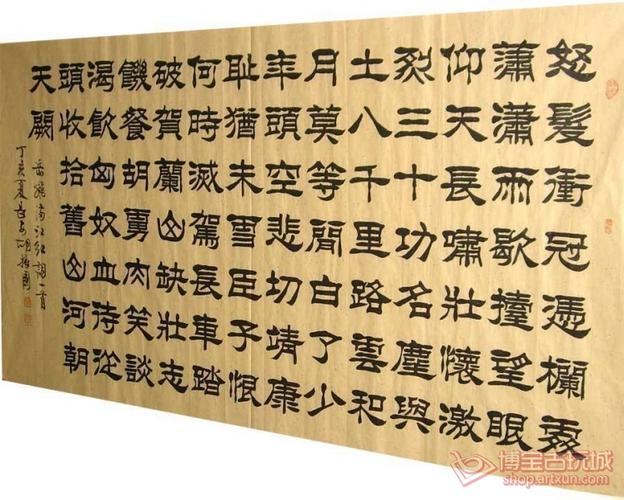 怒髮衝冠憑欄處
瀟瀟雨歇擡望眼
仰天長嘯壯懷激
烈三十功名塵與
土八千里路雲和
月莫等閒白了少
年頭空悲切靖康
耻猶未雪臣子恨
何時滅駕長車踏
破賀蘭山缺壯志
饑餐胡虜肉笑談
渴飲匈奴血待從
頭收拾舊山河朝
天闕
岳飛滿江紅詞一首
丁亥夏長安
博宝古玩城
shop.artxun.com